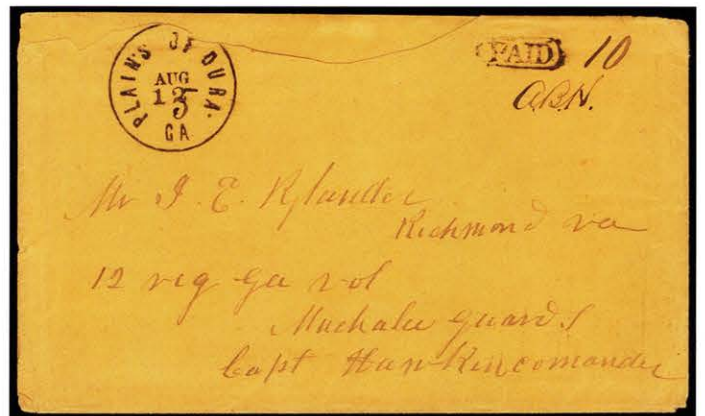 PLAINS OF DURA.
AUG
13
GA
PAID 10
A.B.H.
Mr J. E. Rylander
Richmond va
12 reg Ga vol
Muckalee guards
Capt Hawkin comander